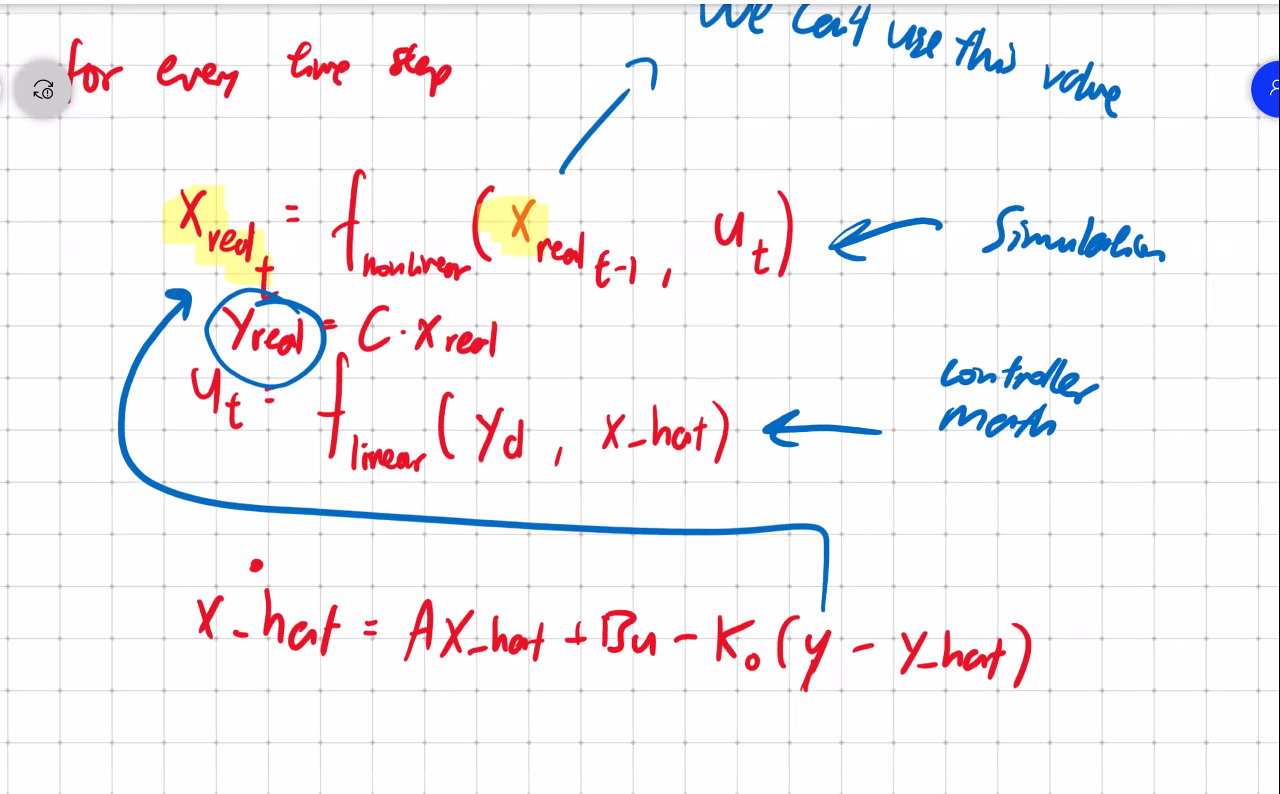 We can't use this value
for every time step
X_real_t = f_nonlinear (X_real_t-1, u_t)
Simulation
y_real = C · x_real
u_t = f_linear (yd, x_hat)
controller
math
ẋ_hat = Ax_hat + Bu - K_o (y - y_hat)